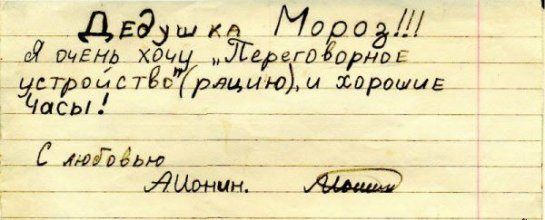 Дедушка Мороз!!!
Я очень хочу „Переговорное
устройство" (рацию), и хорошие
часы!
С любовью
А Ионин.